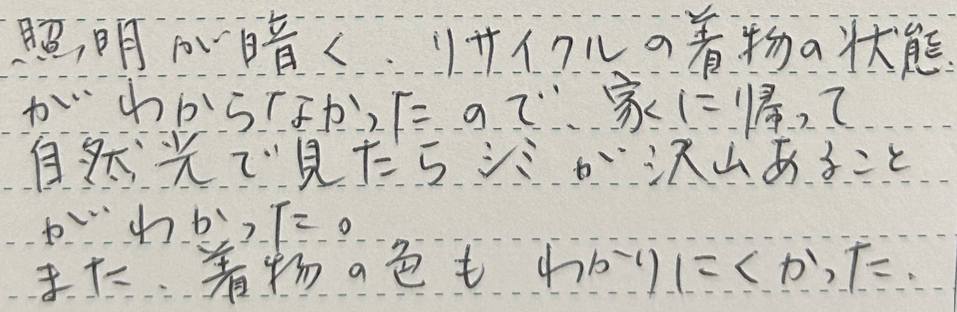 照明が暗く、リサイクルの着物の状態
がわからなかったので、家に帰って
自然光で見たらシミが沢山あること
がわかった。
また、着物の色もわかりにくかった.